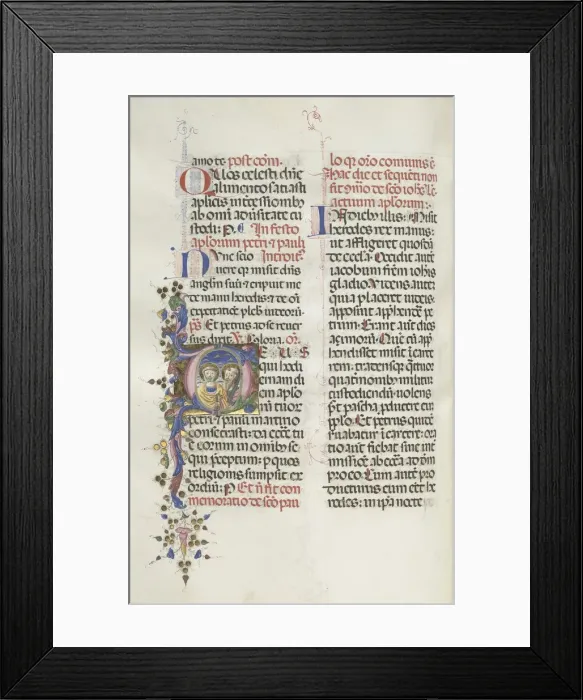 amo te post com.
Quos celesti dñe
alimento satiasti
aplicis intercessionib
ab omni aduersitate cu
stodi: P. In festo
aplorum petri & pauli
Nunc scio Introit.
uere qr misit dñs
anglm suũ & eripuit me
de manu herodis & de oĩ
expectatione pleb iudeorũ.
ps Et petrus ad se reuer
sus dixit. Gloria. or.
EUS
qui hodi
ernam di
em aplo
rũ tuor
petri & pauli martirio
consecrasti: da eccle tu
e eorum in omnibȝ se
qui preceptum: p quos
religionis sumpsit ex
ordiũ: P Et fit com
memoratio de sco pau
lo qr oro comunis ẽ
hac die et sequeti non
fit
de sco iohe. Le
actuum aplorum:.
In diebȝ illis: Misit
herodes rex manus:
ut affligeret quosdã
de eccla. Occidit autẽ
iacobum frẽm iohis
gladio. Videns autẽ
quia placeret iudeis:
apposuit apphendẽ pe
trum. Erant autẽ dies
açimorũ. Quẽ cũ app
hendisset misit ĩ carcẽ
rem: tradens qtuor
quatnionibȝ militũ
custodiendũ: uolens
pt pascha pducere eũ
pplo. Et petrus quidẽ
fuabatur ĩ carcere: ora
tio autẽ fiebat sine int
missiõe ab eccla ad dm
pro eo. Cum autẽ pro
ducturus eum eẽt he
rodes: in ipa nocte